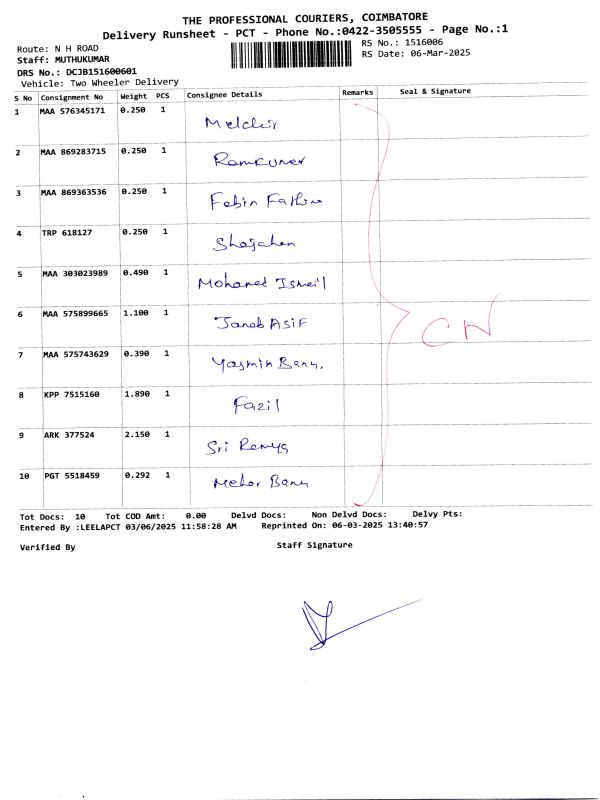 THE PROFESSIONAL COURIERS, COIMBATORE
Delivery Runsheet - PCT - Phone No.:0422-3505555 - Page No.:1
Route: N H ROAD
RS No.: 1516006
Staff: MUTHUKUMAR
RS Date: 06-Mar-2025
DRS No.: DCJB151600601
Vehicle: Two Wheeler Delivery
S No Consignment No Weight PCS Consignee Details Remarks Seal & Signature
1 MAA 576345171 0.250 1 Melchir
2 MAA 869283715 0.250 1 Ramkumer
3 MAA 869363536 0.250 1 Febin Fathima
4 TRP 618127 0.250 1 Shajahen
5 MAA 303023989 0.490 1 Mohamed Ismeil
6 MAA 575899665 1.100 1 Janeb ASIF
7 MAA 575743629 0.390 1 Yasmin Banu.
8 KPP 7515160 1.890 1 Fazil
9 ARK 377524 2.150 1 Sri Remya
10 PGT 5518459 0.292 1 Meher Banu
CN
Tot Docs: 10 Tot COD Amt: 0.00 Delvd Docs: Non Delvd Docs: Delvy Pts:
Entered By :LEELAPCT 03/06/2025 11:58:28 AM Reprinted On: 06-03-2025 13:40:57
Verified By Staff Signature